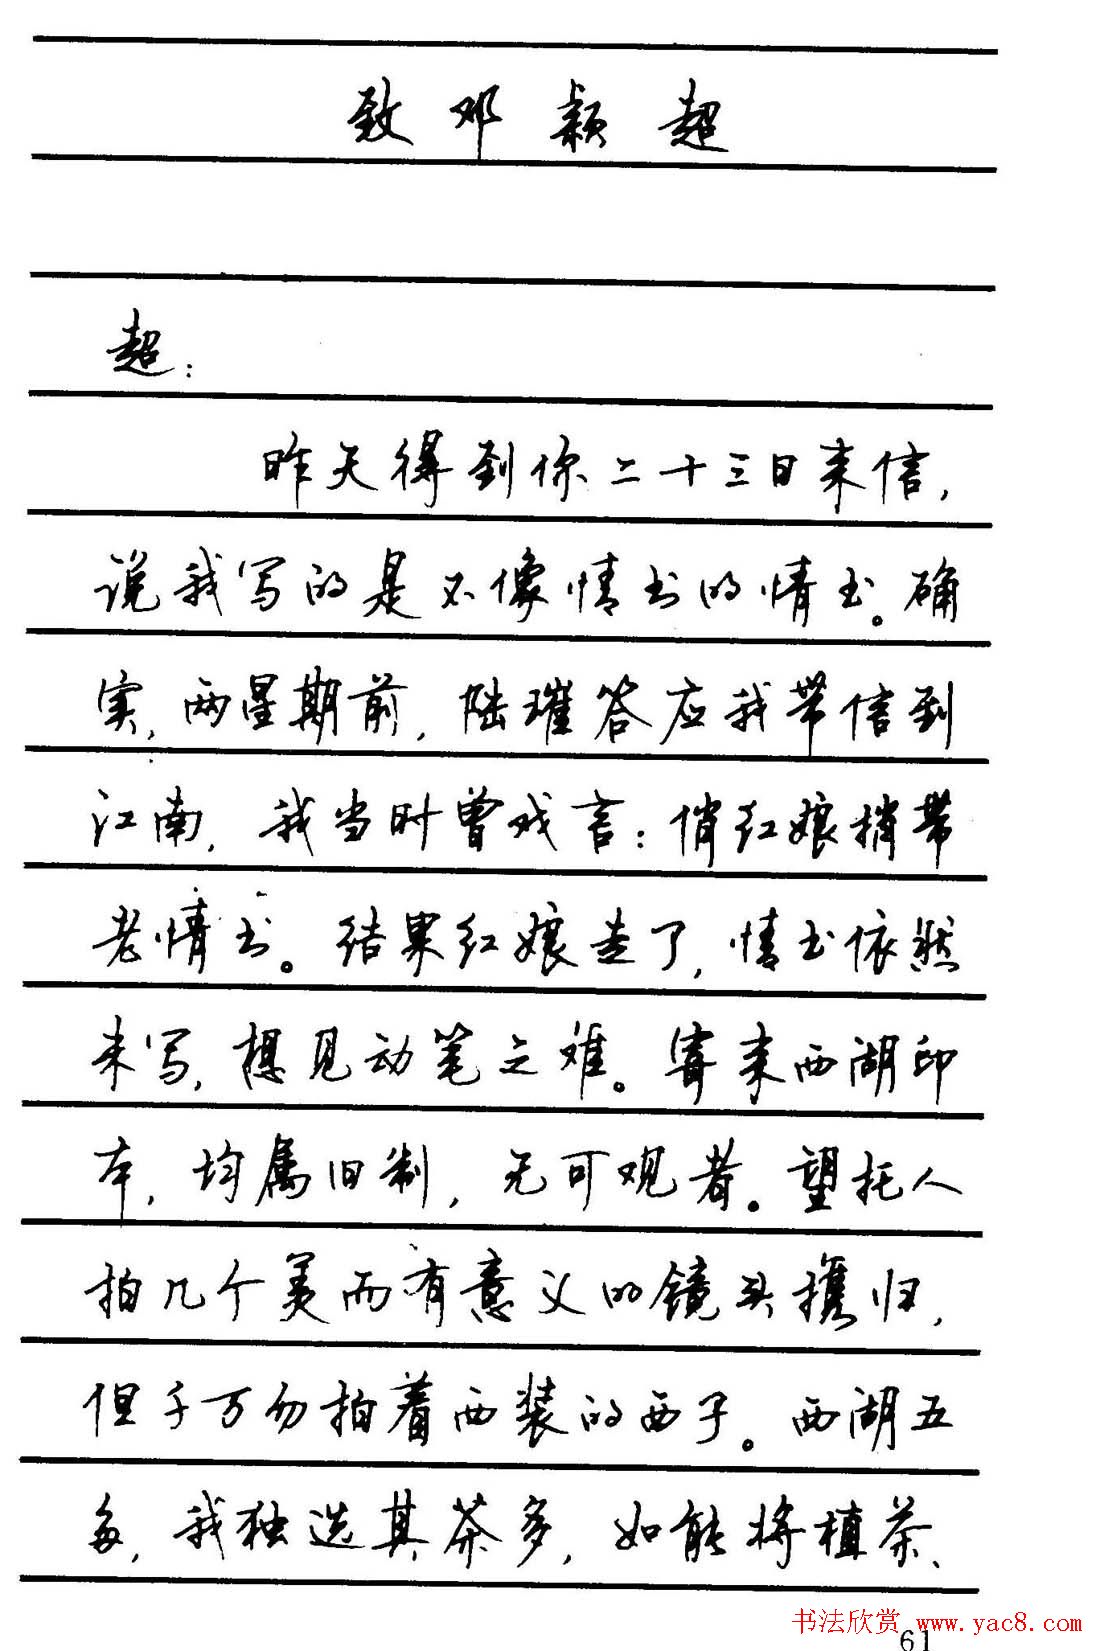 致邓颖超
超:
昨天得到你二十三日来信,
说我写的是不像情书的情书。确
实,两星期前,陆璀答应我带信到
江南,我当时曾戏言:俏红娘捎带
老情书。结果红娘走了,情书依然
未写,想见动笔之难。寄来西湖印
本,均属旧制,无可观者。望托人
拍几个美而有意义的镜头携归,
但千万勿拍着西装的西子。西湖五
多,我独选其茶多,如能将植茶、
书法欣赏 www.yac8.com
61